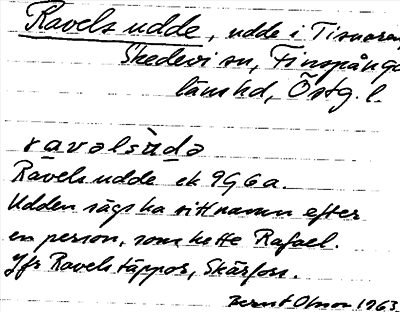 Ravels udde, udde i Tisnaren,
Skedevi sn, Finspånga
länshd, Östg. l.
ravəlsùdə
Ravels udde ek 9G6a.
Udden sägs ha sitt namn efter
en person, som hette Rafael.
Jfr Ravels täppor, Skärfors.
Bernt Olsson 1963.